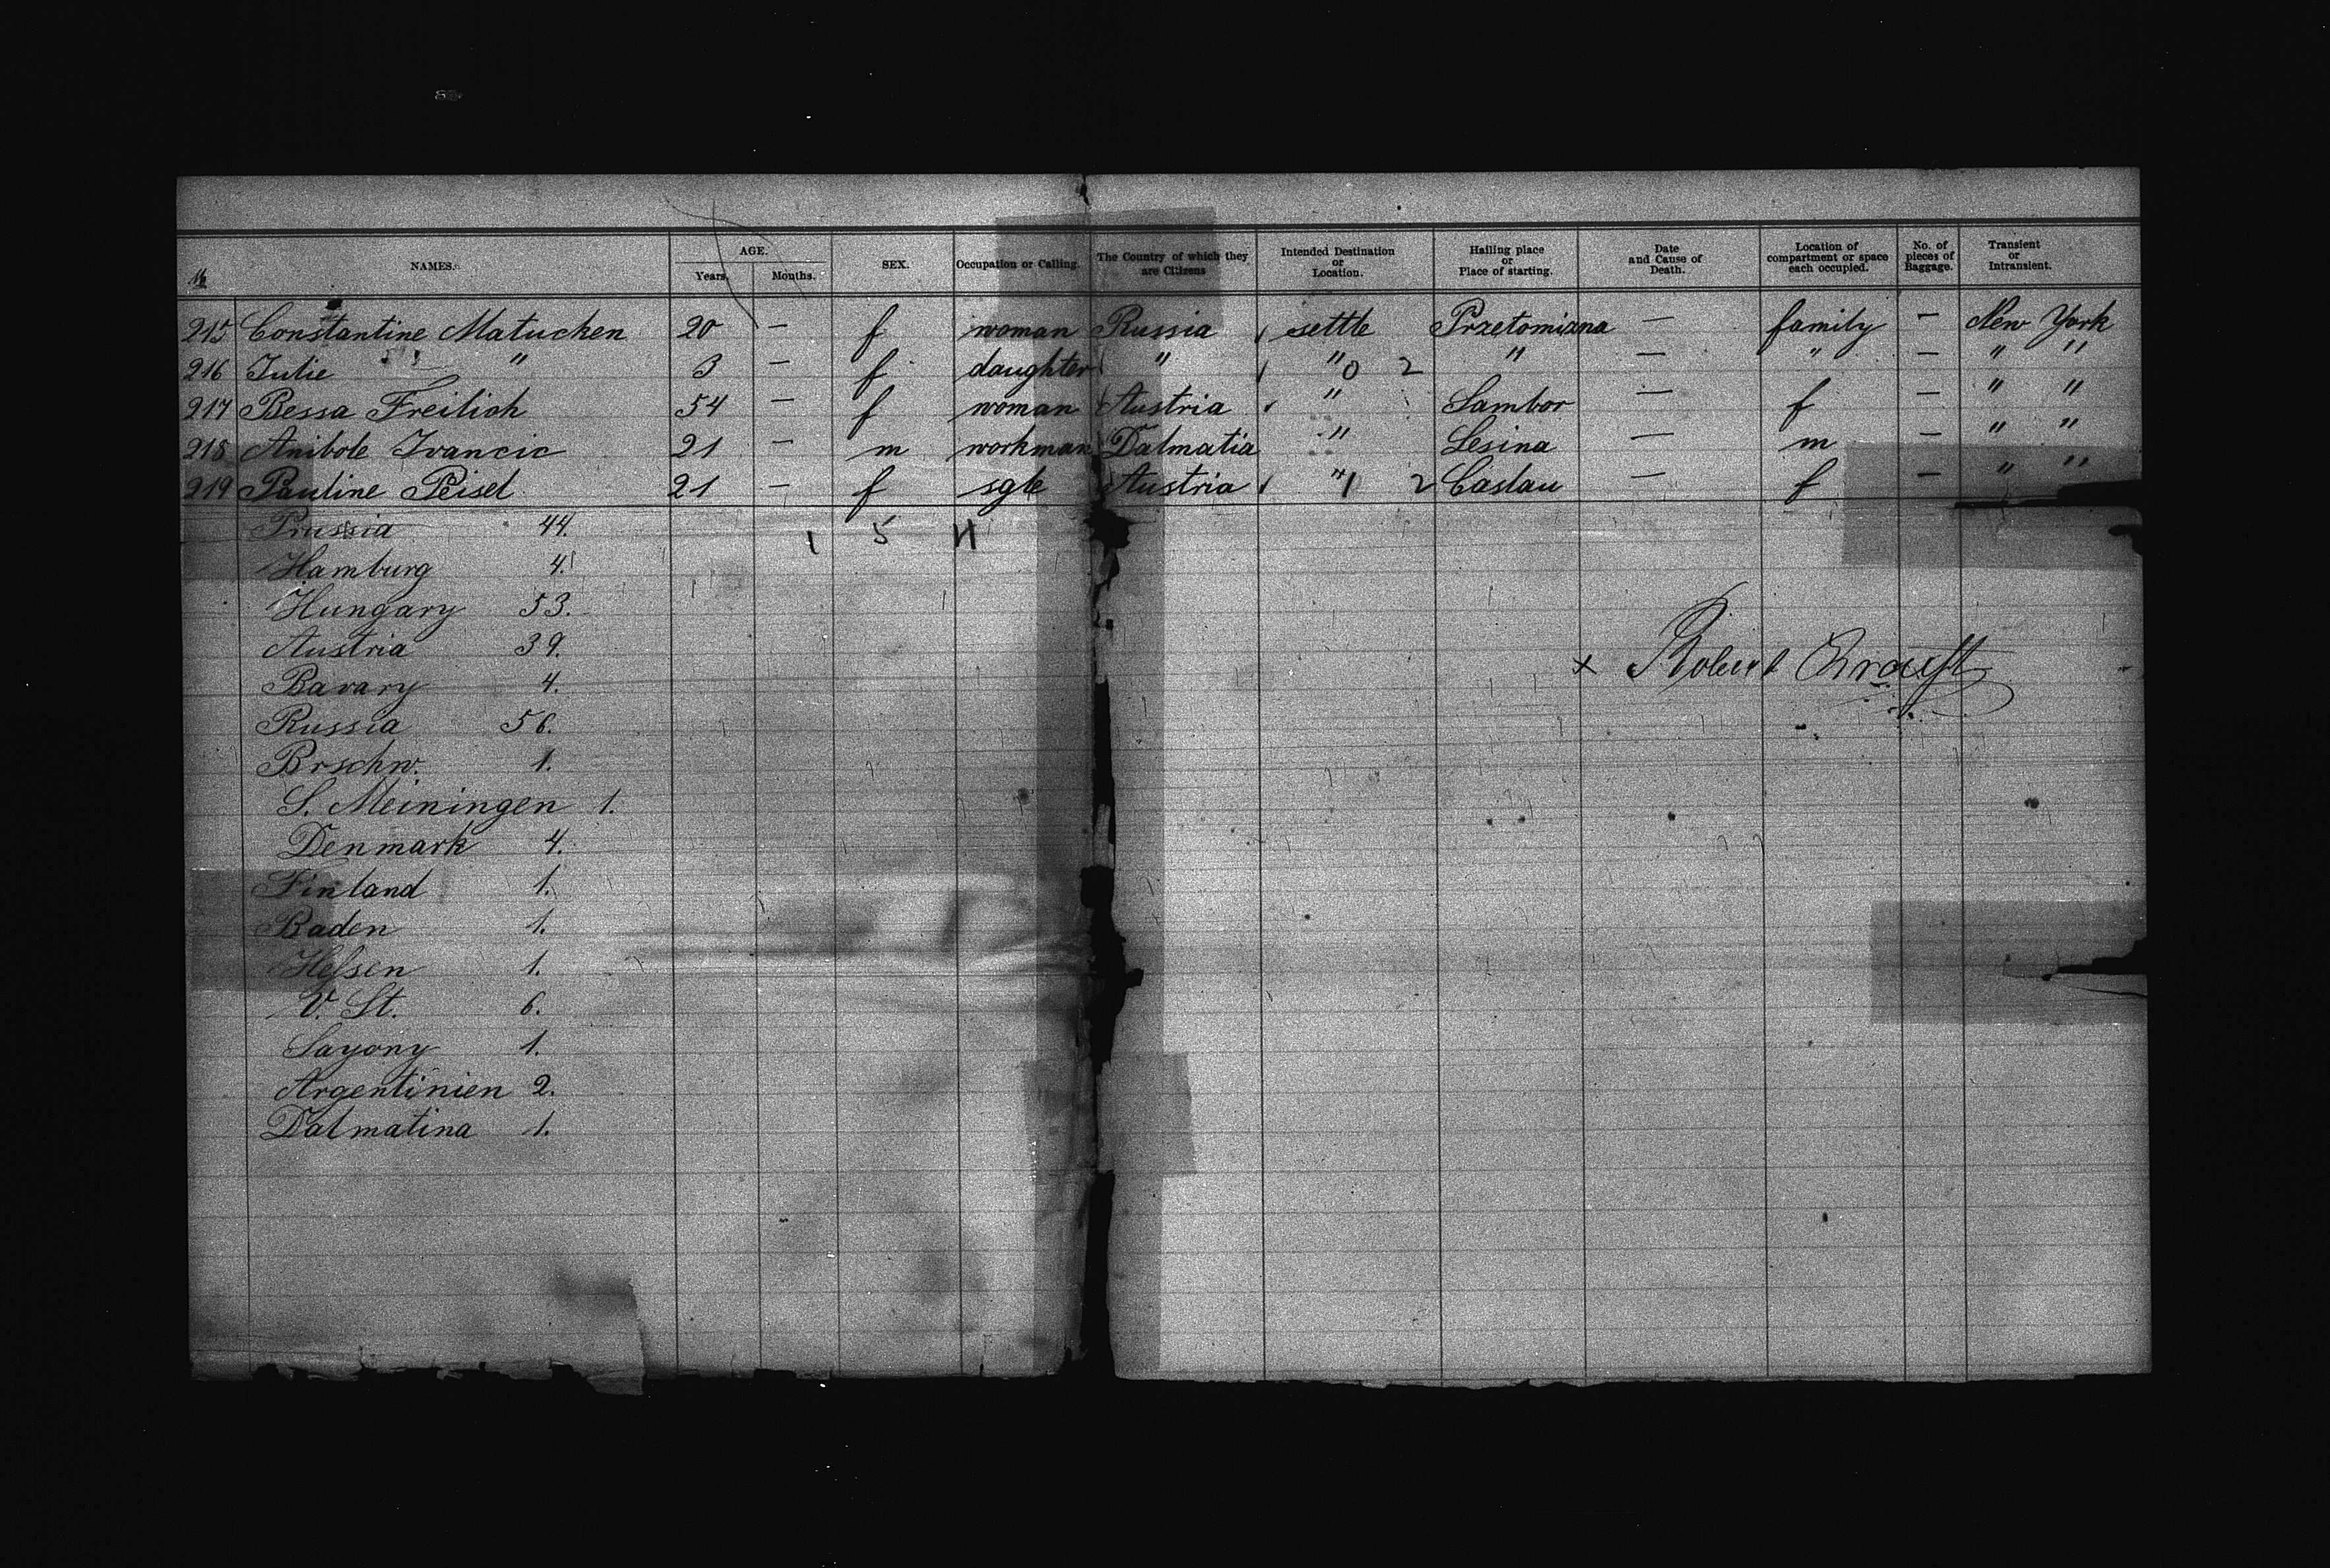 № NAMES. AGE. Years. Months. SEX. Occupation or Calling. The Country of which they are Citizens Intended Destination or Location. Hailing place or Place of starting. Date and Cause of Death. Location of compartment or space each occupied. No. of pieces of Baggage. Transient or Intransient.
215 Constantine Matuchen 20 — f woman Russia settle Przetomizna — family — New York
216 Julie " 3 — f daughter " " 0 2 " — " — " "
217 Bessa Freilich 54 — f woman Austria " Sambor — f — " "
218 Anibole Ivancic 21 — m workman Dalmatia " Lesina — m — " "
219 Pauline Peisel 21 — f sgle Austria " 1 2 Caslau — f — " "
Prussia 44. 1 5 H
Hamburg 4.
Hungary 53.
Austria 39.
Bavary 4.
x Robert
Russia 56.
Brschw. 1.
S. Meiningen 1.
Denmark 4.
Finland 1.
Baden 1.
Hessen 1.
V. St. 6.
Saxony 1.
Argentinien 2.
Dalmatina 1.